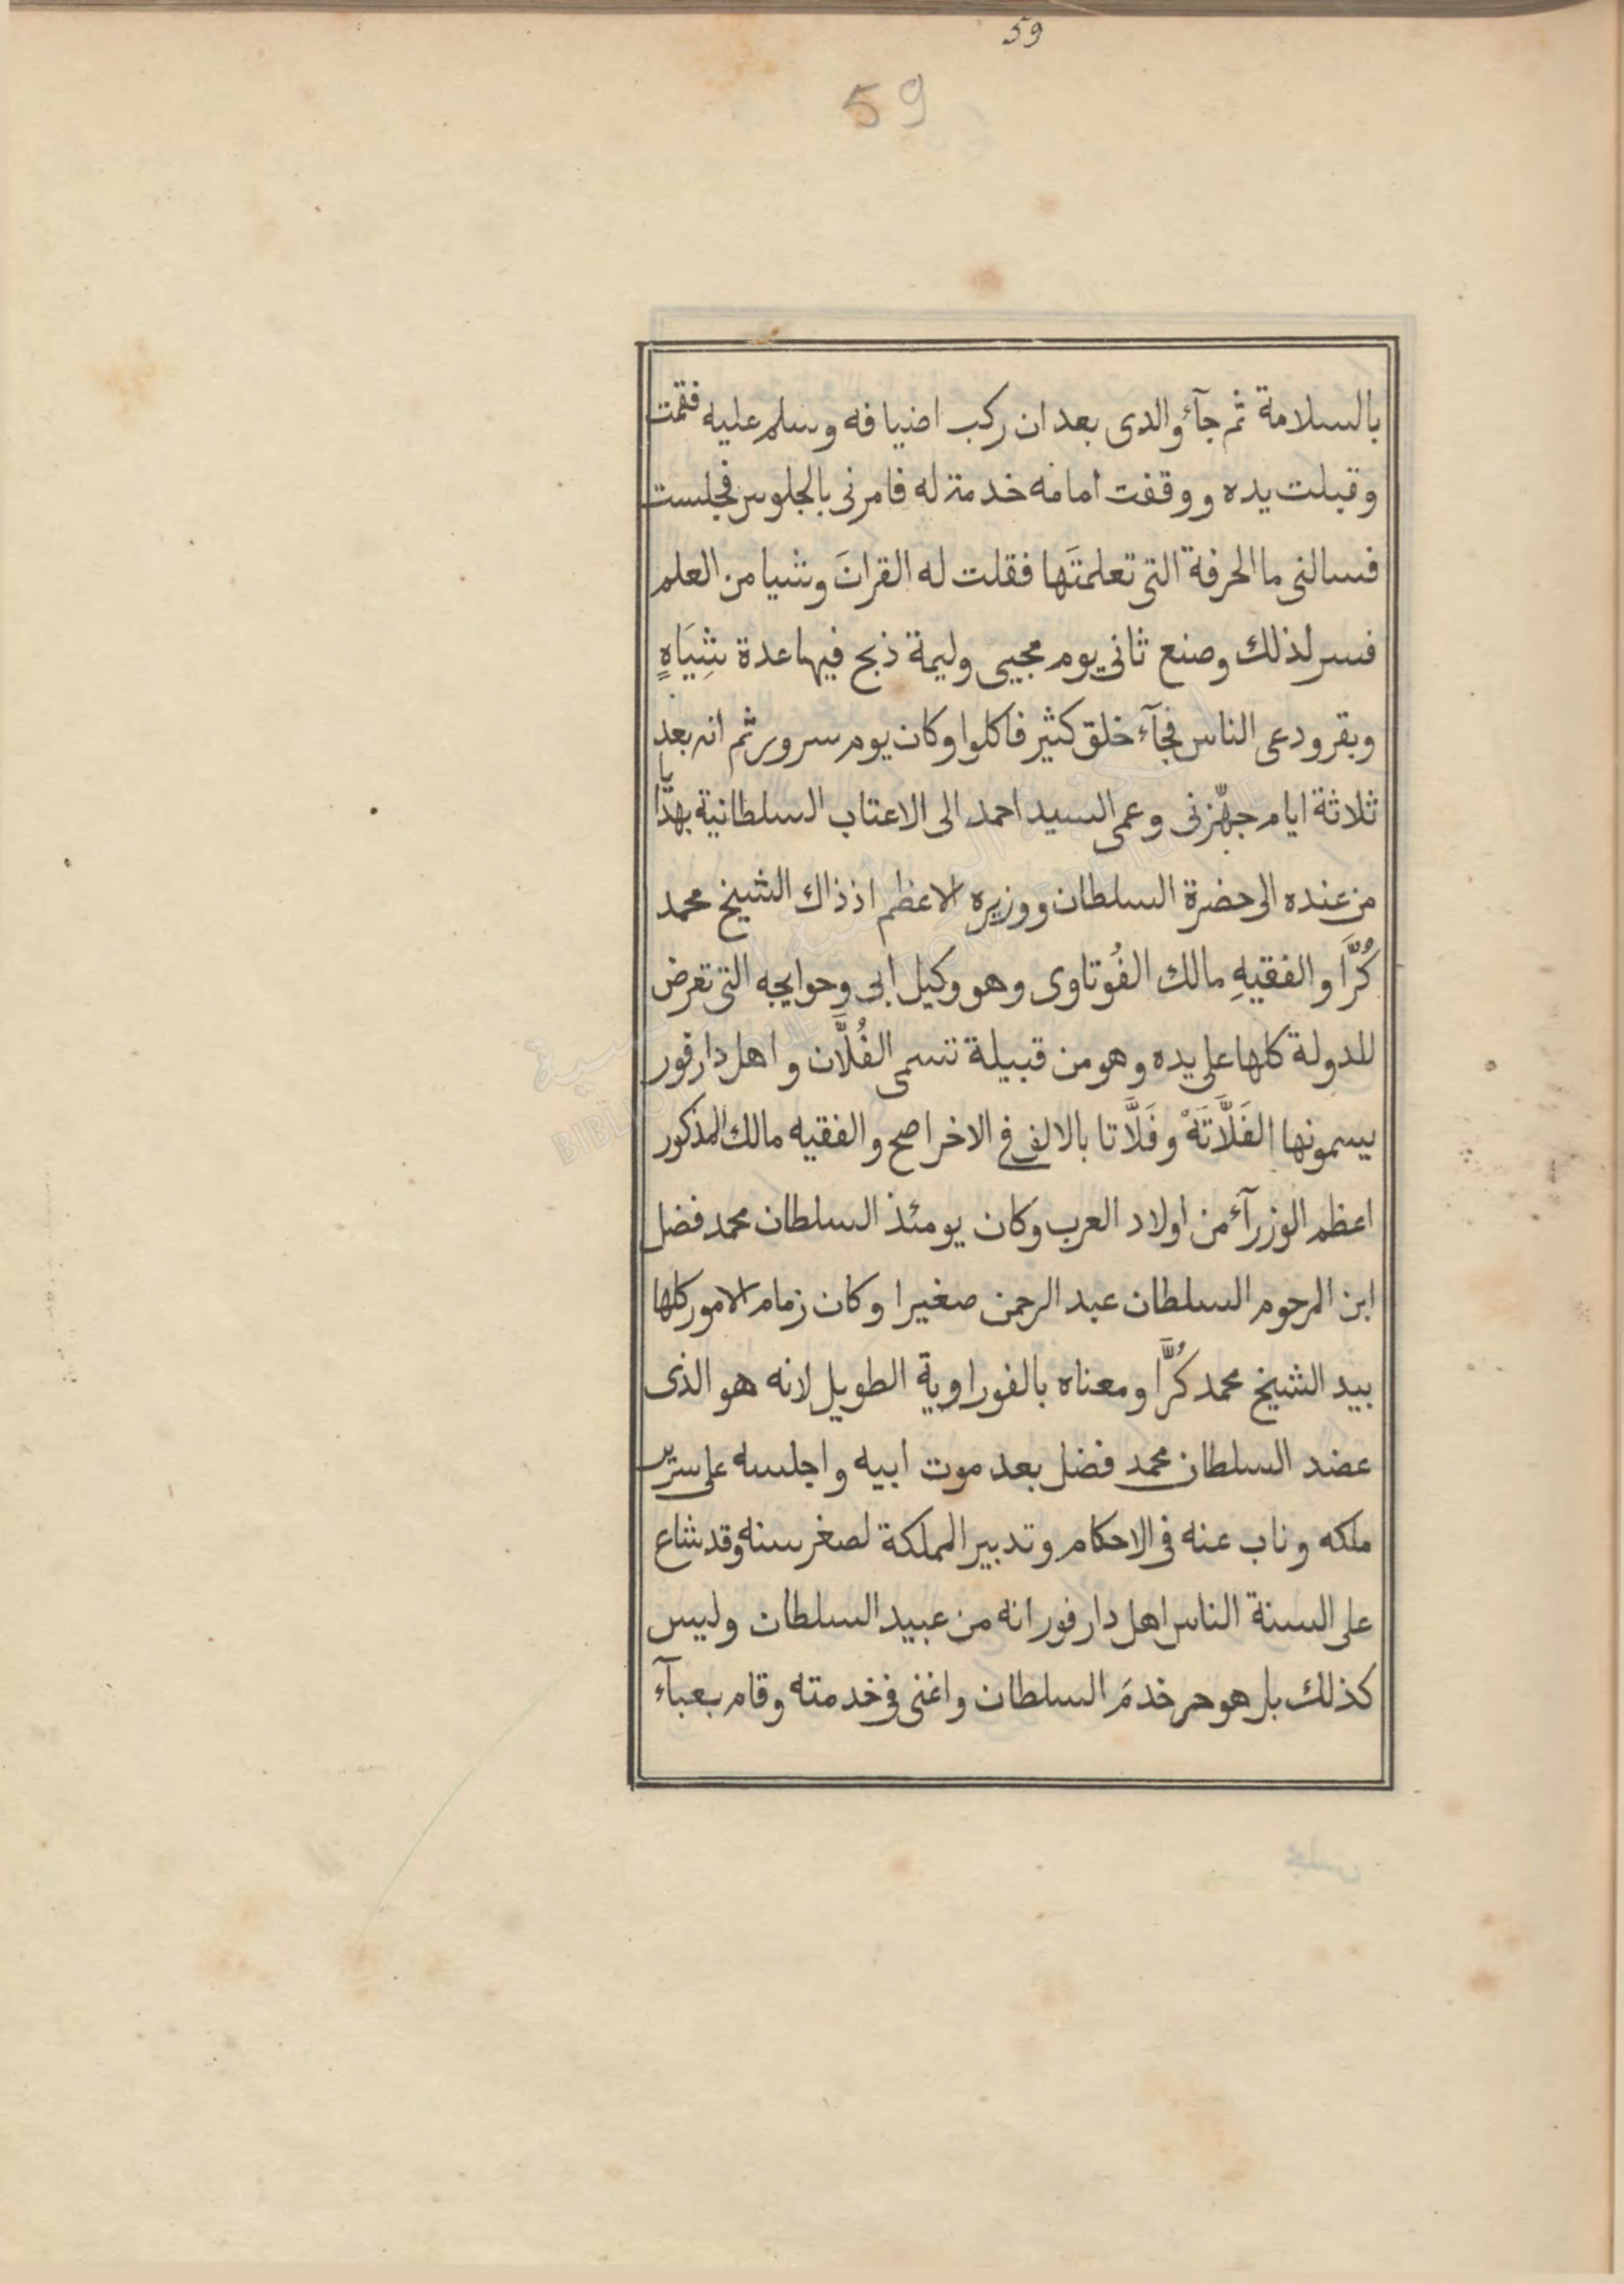 59
59
بالسلامة ثم جآء والدى بعد ان ركب اضيافه وسلم عليه فقمت
وقبلت يده ووقفت امامه خدمة له فامرنى بالجلوس فجلست
فسالنى ما الحرفة التى تعلمتَها فقلت له القرانَ وشيا من العلم
فسر لذلك وصنع ثانى يوم مجيى وليمة ذبح فيها عدة شِيَاهٍ
وبقر ودعى الناس فجآء خلق كثير فاكلوا وكان يوم سرور ثم انه بعد
ثلاثة ايام جهّزنى وعمى السيد احمد الى الاعتاب السلطانية بهدَّا
من عنده الى حضرة السلطان ووزيره الاعظم اذ ذاك الشيخ محمد
كُرَّا والفقيهِ مالك الفُوتاوى وهو وكيل ابى وحوايجه التى تعرض
للدولة كلها على يده وهو من قبيلة تسمى الفُلَّان واهل دارفور
يسمونها الفَلَّاتَهْ وفَلَّاتا بالالف فى الاخر اصح والفقيه مالك المذكور
اعظم الوزرآء من اولاد العرب وكان يومئذ السلطان محمد فضل
ابن المرحوم السلطان عبد الرحمن صغيرا وكان زمام الامور كلها
بيد الشيخ محمد كُرَّا ومعناه بالفوراوية الطويل لانه هو الذى
عضد السلطان محمد فضل بعد موت ابيه واجلسه على سرير
ملكه وناب عنه فى الاحكام وتدبير المملكة لصغر سنه وقد شاع
على السنة الناس اهل دارفور انه من عبيد السلطان وليس
كذلك بل هو حر خدمَ السلطان واغنى فى خدمته وقام بعبآء